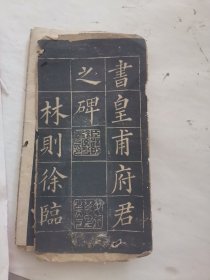 書皇甫府君
之碑
林則徐臨